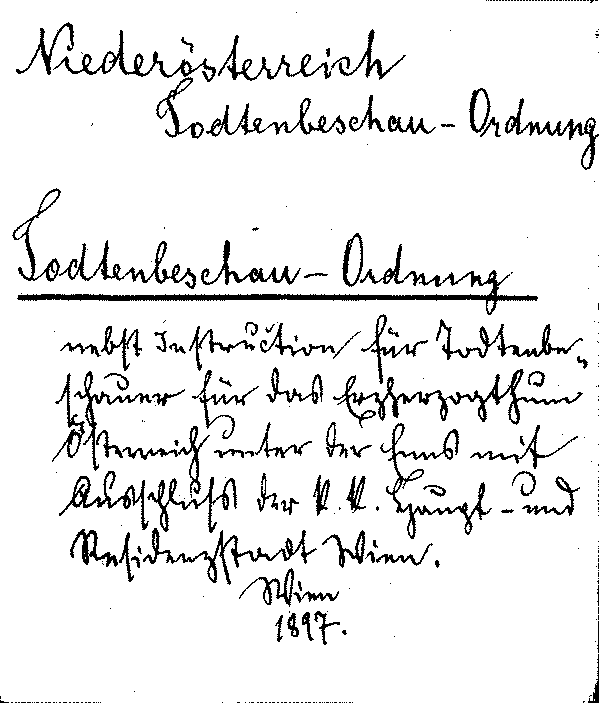 Niederösterreich
Todtenbeschau - Ordnung
Todtenbeschau - Ordnung
nebst Instruction für Todtenbe-
schauer für das Erzherzogthum
Österreich unter der Enns mit
Ausschluſs der k. k. Haupt - und
Residenzstadt Wien.
Wien
1897.